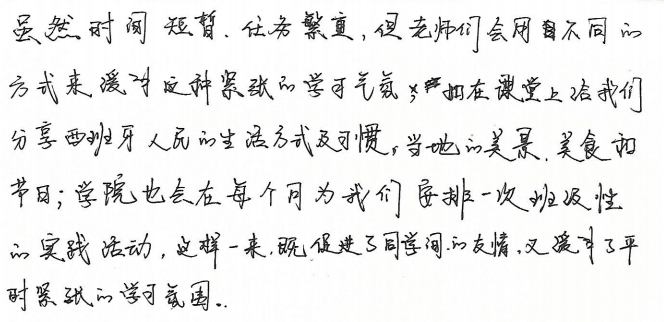 虽然时间短暂、任务繁重，但老师们会用不同的
方式来缓冲这种紧张的学习气氛；如在课堂上给我们
分享西班牙人民的生活方式及习惯，当地的美景、美食和
节日；学院也会在每个月为我们安排一次班级性
的实践活动，这样一来，既促进了同学间的友情，又缓冲了平
时紧张的学习氛围。